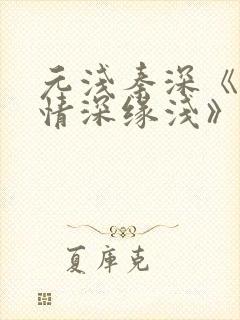 元浅秦深《
情深缘浅》
夏库克